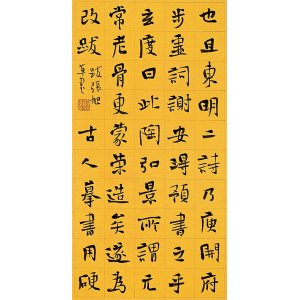 也且東明二詩乃庾開府
步虛詞謝安得預書之乎
玄度曰此陶弘景所謂元
常老骨更蒙榮造矣遂為
改跋
跋張旭
古人摹書用硬